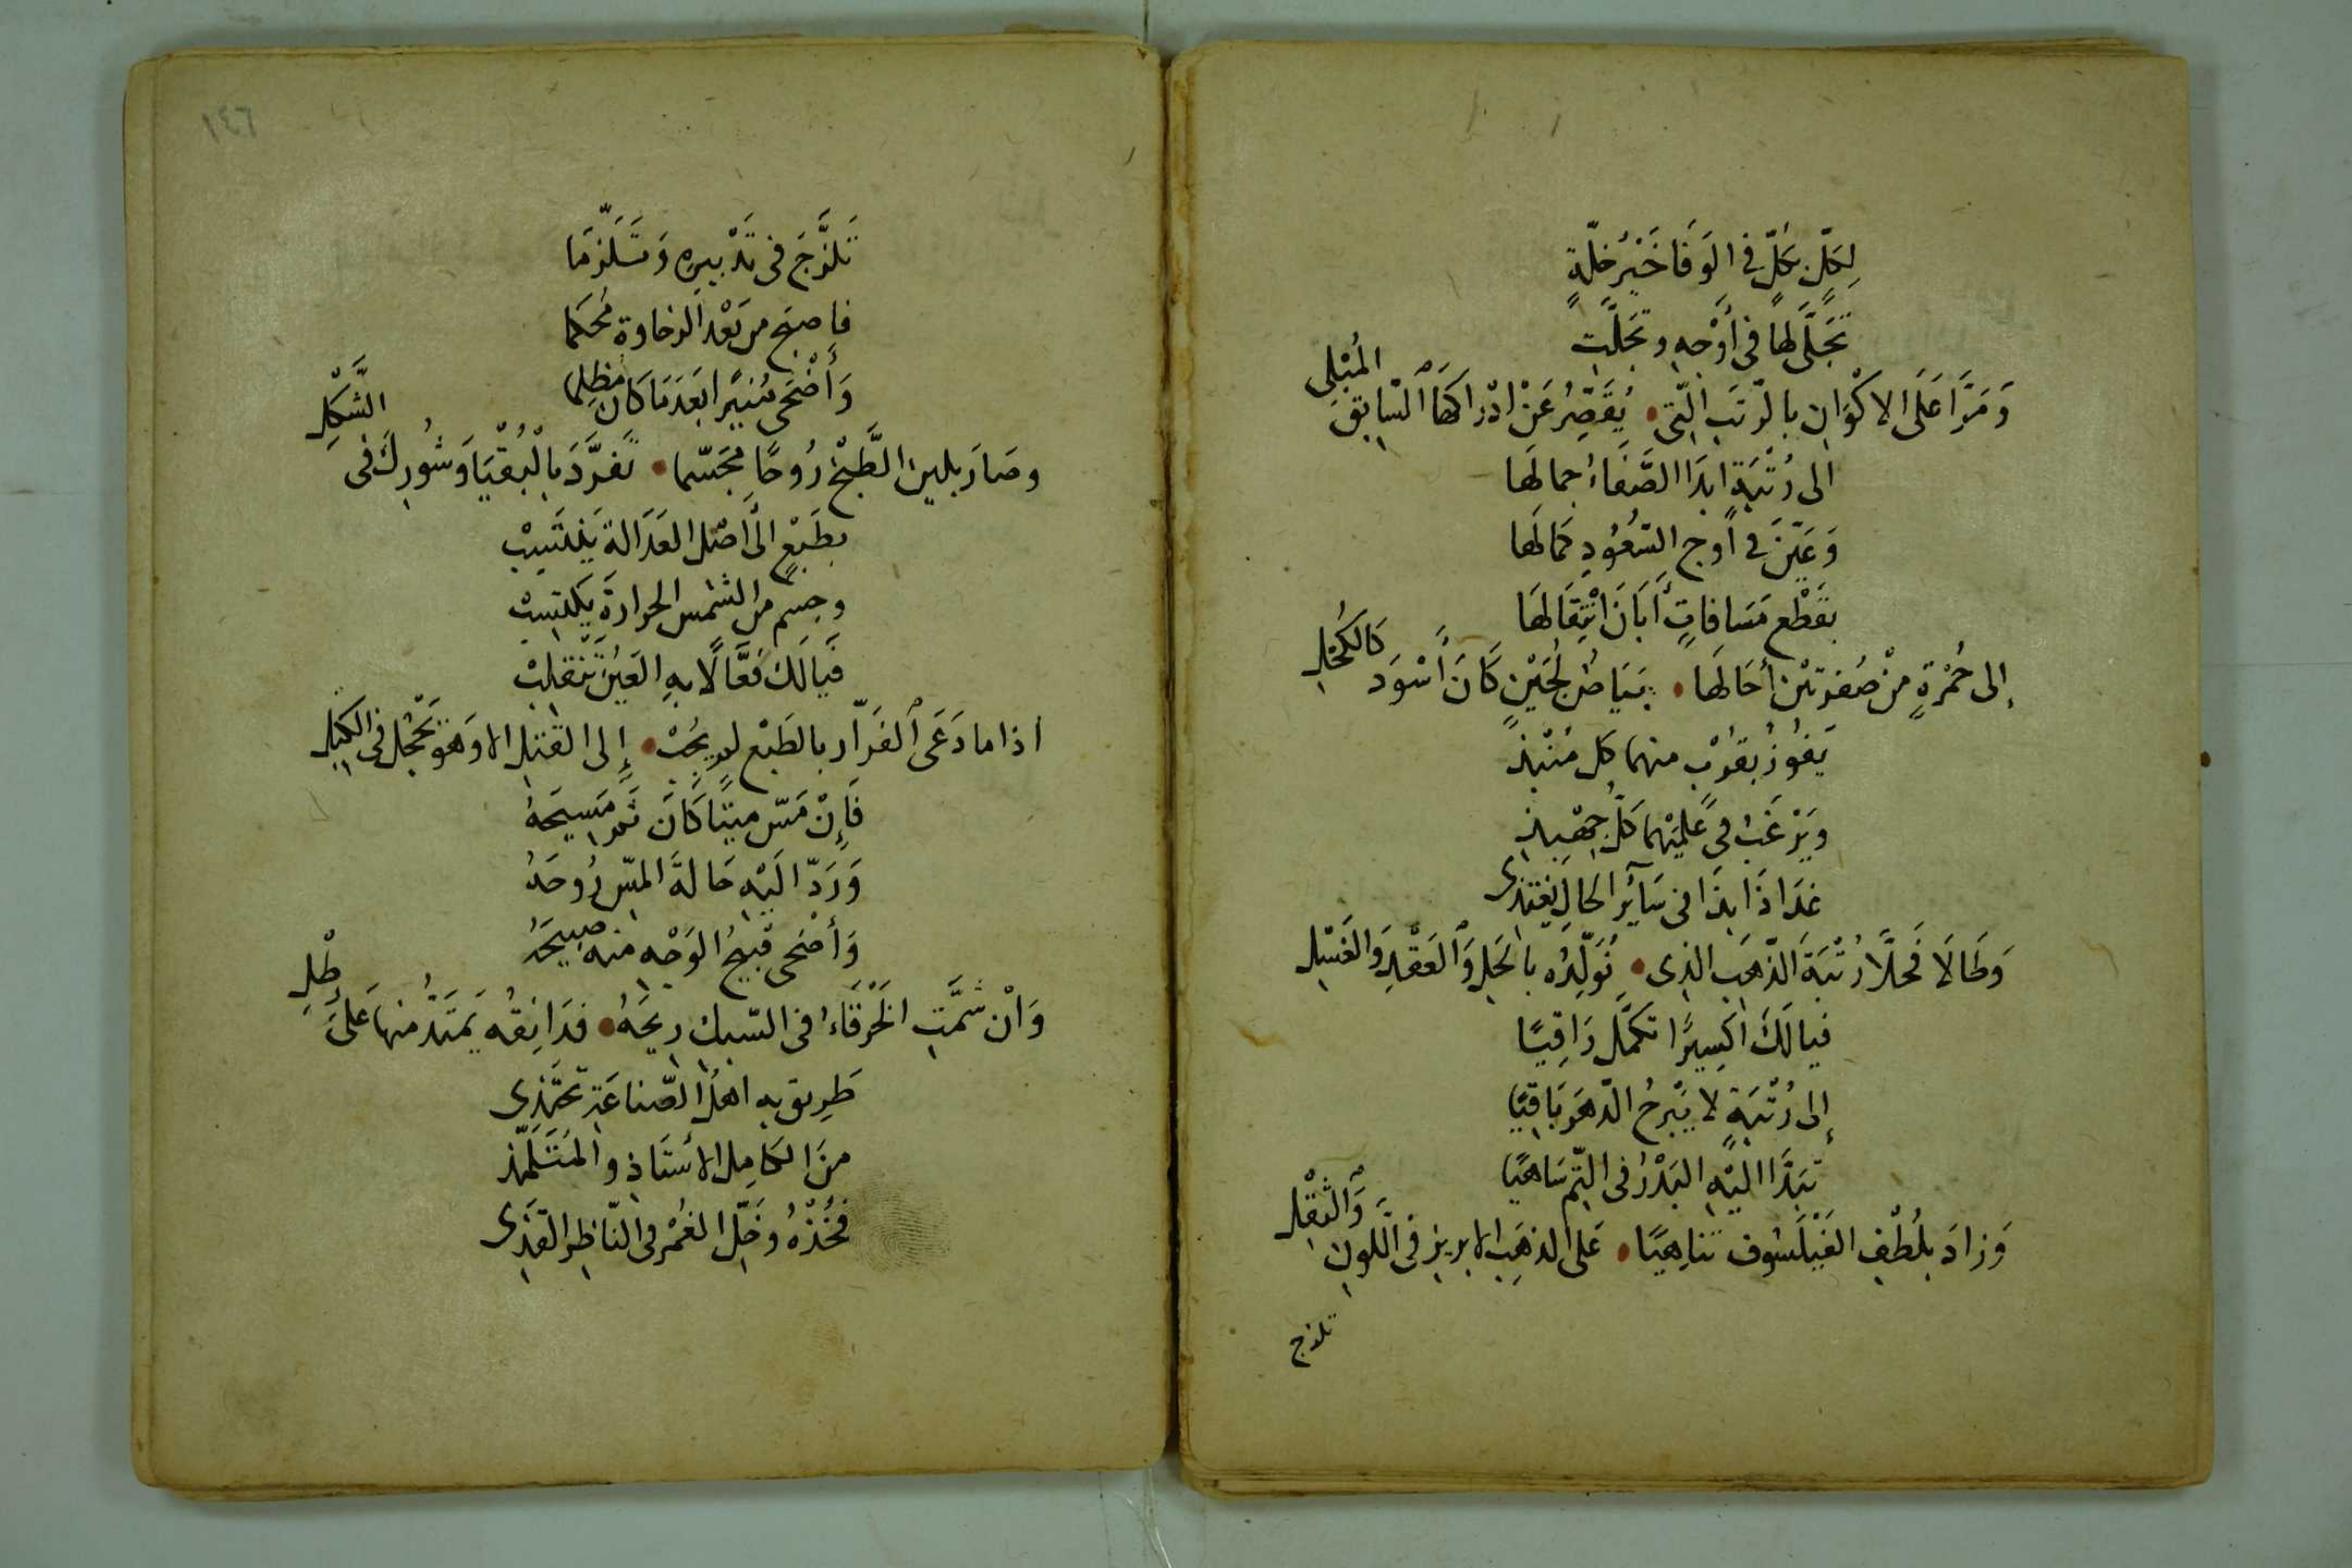 لِكُلٍّ بِكُلٍّ فِي الوَفَا خَيْرُ خلّةٍ
تَجَلَّى لهَا فى أَوْجِهِ وتجَلّتِ
وَمَرَّا عَلَى الاكْوَانِ بالرّتَبِ الّتى • يُقَصِّرُ عَنْ ادْرَاكهَا السّابِقُ المُبْلِى
الى رُتْبَةٍ ابدَا الصَّفَاءُ جمالهَا
وَعَيّنَ فى أوجِ السّعُودِ كمالهَا
بقَطْع مَسَافاتٍ أَبَانَ انْتِقَالهَا
إلى حُمْرَةٍ مِنْ صُفرَتيْن أحَالهَا • بيَاضُ لُجَيْنٍ كَانَ أسْوَدَ كَالكُحْلِ
يَفوُزُ بقرُبٍ منهما كل مُنْبَذ
ويَرْغَبُ فى عِلمَيْهما كلُّ جِهْبِذِ
غدَا ذَا بذَا فى سَآئِرِ الحَالِ يَغْتذِى
وَطَالَا فحَلّا رُتْبَةَ الذّهبِ الذِى • نُوَلِّدُه بالحَلِ وَالعَقْدِ وَالغَسْلِ
فيالَكَ اكسِيرًا تكمّلَ رَاقِيًا
إلى رُتْبَةٍ لا يَبْرحُ الدّهرَ بَاقِيًا
تبَدّا اليْهِ البَدْرُ فى التّم سَاهيًا
وَزادَ بلُطْفِ الفَيْلَسُوف تناهيًا • عَلى الذهَبِ الابريز فى اللّونِ وَالثِقْلِ
تلزج
١٤٦
تَلزَّجَ فى تدْبيرِهِ وَتسَلَزّمَا
فاصبَح من بَعْدِ الرخاوة مُحكما
وَأَضْحَى مُنيرًا بَعدَ مَا كانَ مُظلِما
وصَارَ بلين الطَّبْخ رُوحًا مجَسّما • تفرَّدَ بالْبُقْيَا وَشُورِكَ فى الشَّكْلِ
بطَبْعٍ الى اصْل العَدَالة يَنْتَسِبْ
وجسم من الشمس الحرارةَ يكتسِبْ
فيَالَكَ فعَّالًا بهِ العَيْنُ تَنْقلِبْ
اذا ما دَعَى الفَرّار بالطَبْع لم يجُبْ • إلى القَتل الا وَهوَ يَحْجُلُ فى الكَبْلِ
فَإِنْ مَسّ ميتًا كَانَ ثمَّ مَسِيحَهُ
وَرَدّ الَيْهِ حَالةَ المسّ رُوحَهُ
وَأضْحى قبيحُ الوَجْهِ منه صبيحَهُ
وَانْ شمَّتِ الخَرْقَاءُ فى السّبكِ ريحَهُ • فدَانِقُه يَمتَدُّ منها عَلى رِطْلِ
طَرِيق بهِ اهلُ الصّناعَةِ تحتَذِى
منَ الكامِل الأسْتَاذِ والمُتَتَلمّذ
فخُذْهُ وخَلّ الغُمْرَ فى النّاظِر القذِى